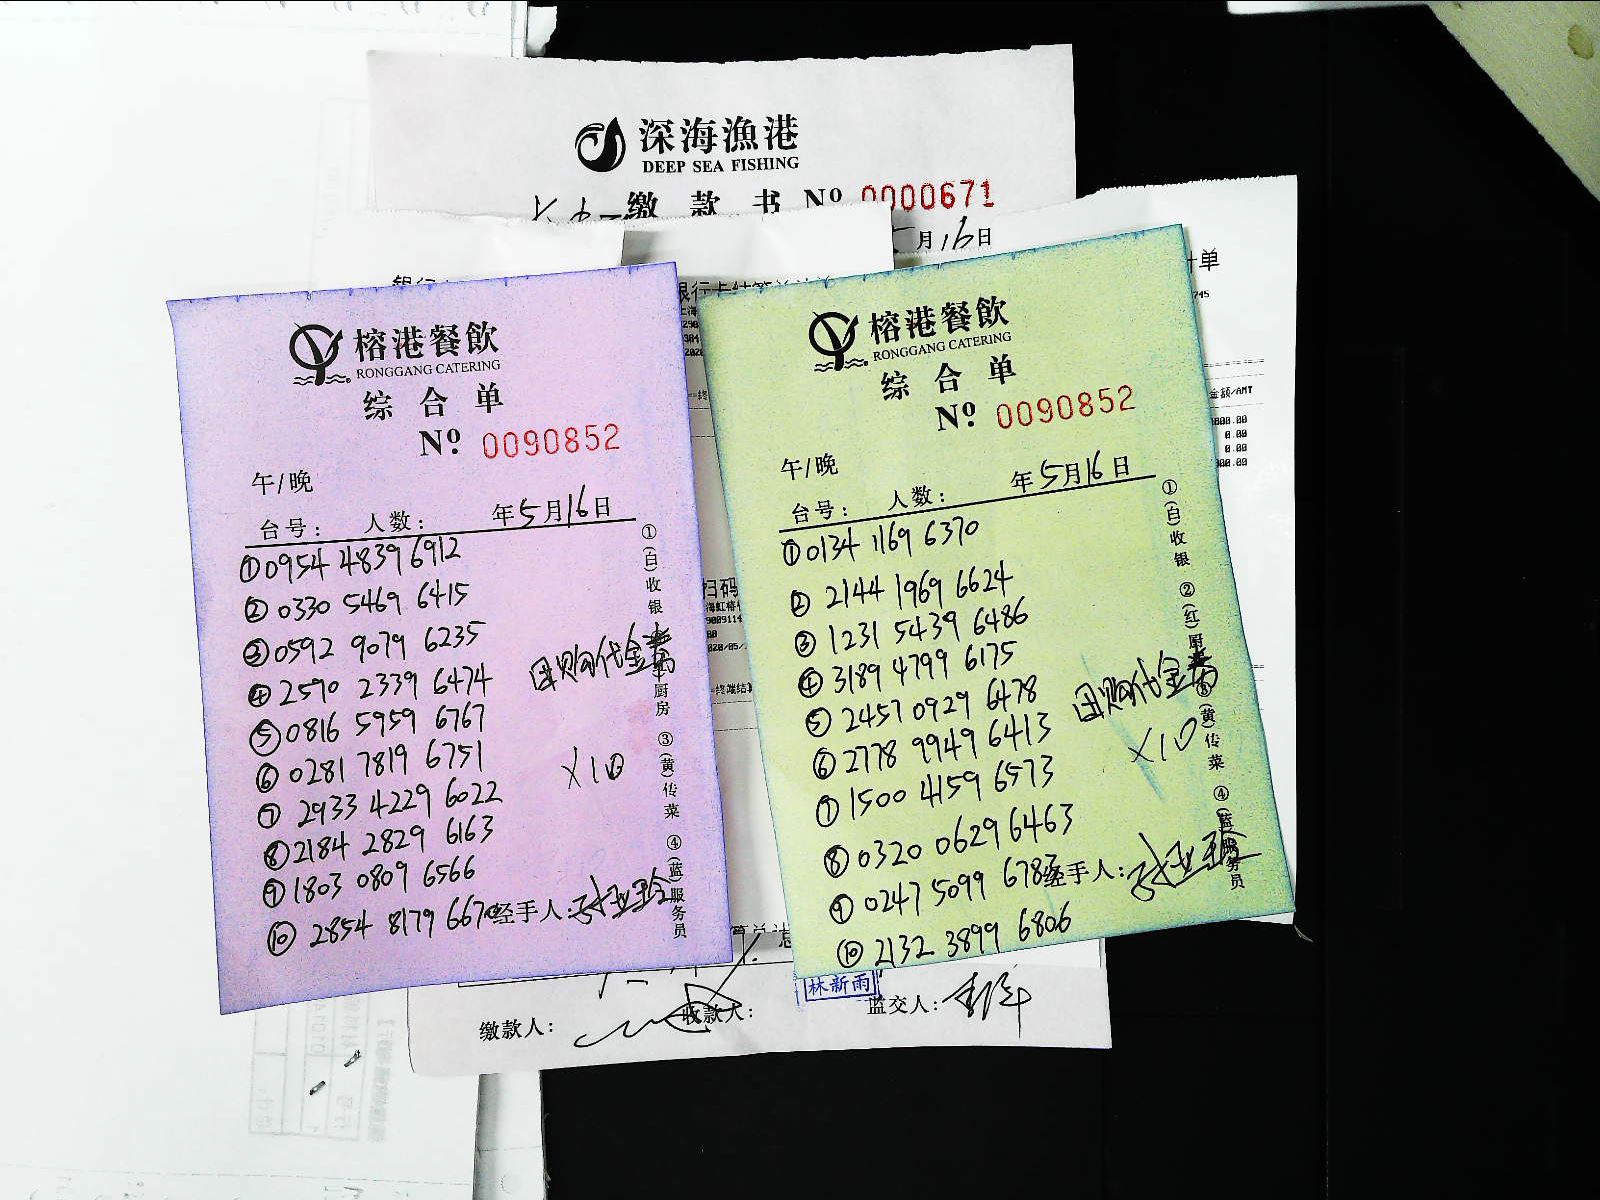 深海漁港
DEEP SEA FISHING
缴款书 Nº 0000671
月16日
榕港餐飲
RONGGANG CATERING
综合单
Nº 0090852
午/晚
台号: 人数: 年5月16日
①0954 4839 6912
②0330 5469 6415
③0592 9079 6235
④2590 2339 6474
⑤0816 5959 6767
⑥0281 7819 6751
⑦2933 4229 6022
⑧2184 2829 6163
⑨1803 0809 6566
⑩2854 8179 667
经手人:
团购代金券
×10
①(白)收银
厨房 ③(黄)传菜 ④(蓝)服务员
榕港餐飲
RONGGANG CATERING
综合单
Nº 0090852
午/晚
台号: 人数: 年5月16日
①0134 1169 6370
②2144 1969 6624
③1231 5439 6486
④3189 4799 6175
⑤2457 0929 6478
⑥2778 9949 6413
⑦1500 4159 6573
⑧0320 0629 6463
⑨0247 5099 678
⑩2132 3899 6806
经手人:
团购代金券
×10
①(白)收银 ②(红)厨 (黄)传菜 ④(蓝)服务员
计单
745
金额/AMT
0.00
0.00
扫码
终端结算
缴款人: 收款人: 林新雨 监交人: